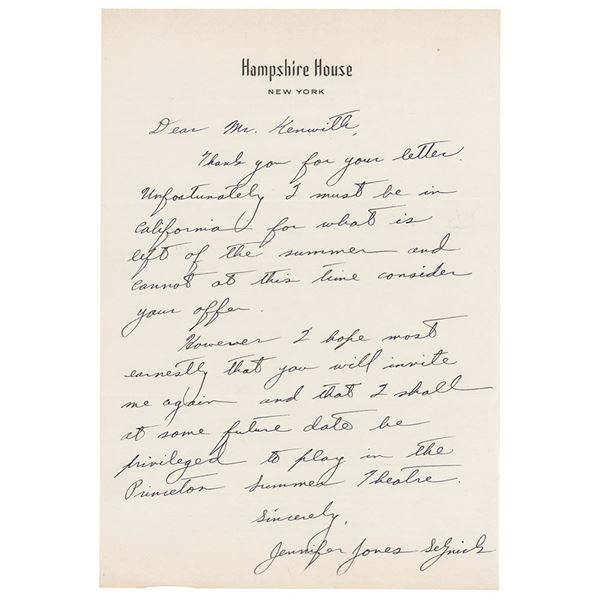 Hampshire House
NEW YORK
Dear Mr. Kenwith,
Thank you for your letter.
Unfortunately I must be in
California for what is
left of the summer and
cannot at this time consider
your offer.
However I hope most
earnestly that you will invite
me again and that I shall
at some future date be
privileged to play in the
Princeton Summer Theatre.
Sincerely,
Jennifer Jones Selznick